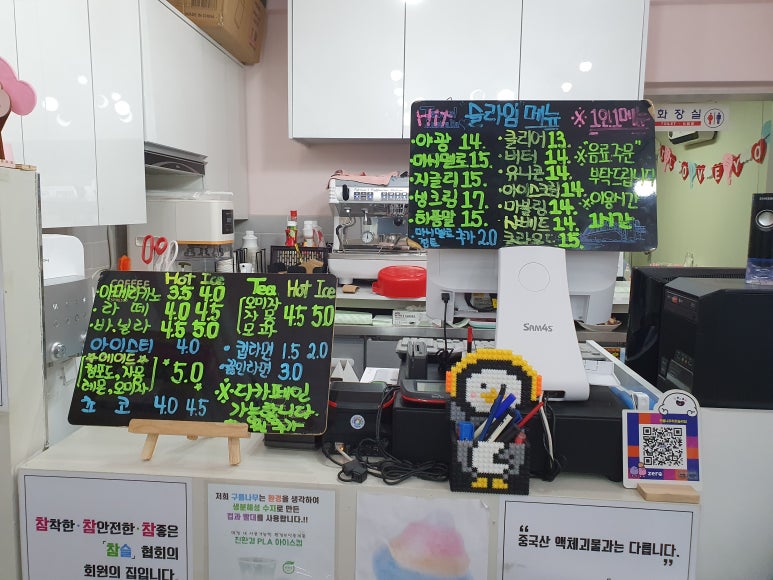 MADE IN CHINA
슬라임 메뉴
※ 1인 1메뉴
야광 14.
마시멜로 15.
지글리 15.
생크림 17.
하롱말 15.
클리어 13.
버터 14.
유니콘 14.
아이스크림 14.
마블링 14.
N버트 14.
클라우드 15.
추가 2.0
※"음료주문"
부탁드립니다
※이용시간
1시간
화장실
TOILET
SAMSUNG
COFFEE Hot Ice
아메리카노 3.5 4.0
라떼 4.0 4.5
바닐라 4.5 5.0
아이스티 4.0
*에이드*
청포도, 자몽
레몬, 오미자
*5.0
초코 4.0 4.5
Tea Hot Ice
오미자
자몽
모과
4.5 5.0
컵라면 1.5 2.0
끓인라면 3.0
※디카페인
가능합니다.
SAM4S
zero
참착한·참안전한·참좋은
「참슬」 협회의
회원의 집입니다.
저희 구름나무는 환경을 생각하여
생분해성 수지로 만든
컵과 빨대를 사용합니다.!!
친환경 PLA 아이스컵
“중국산 액체괴물과는 다릅니다.”